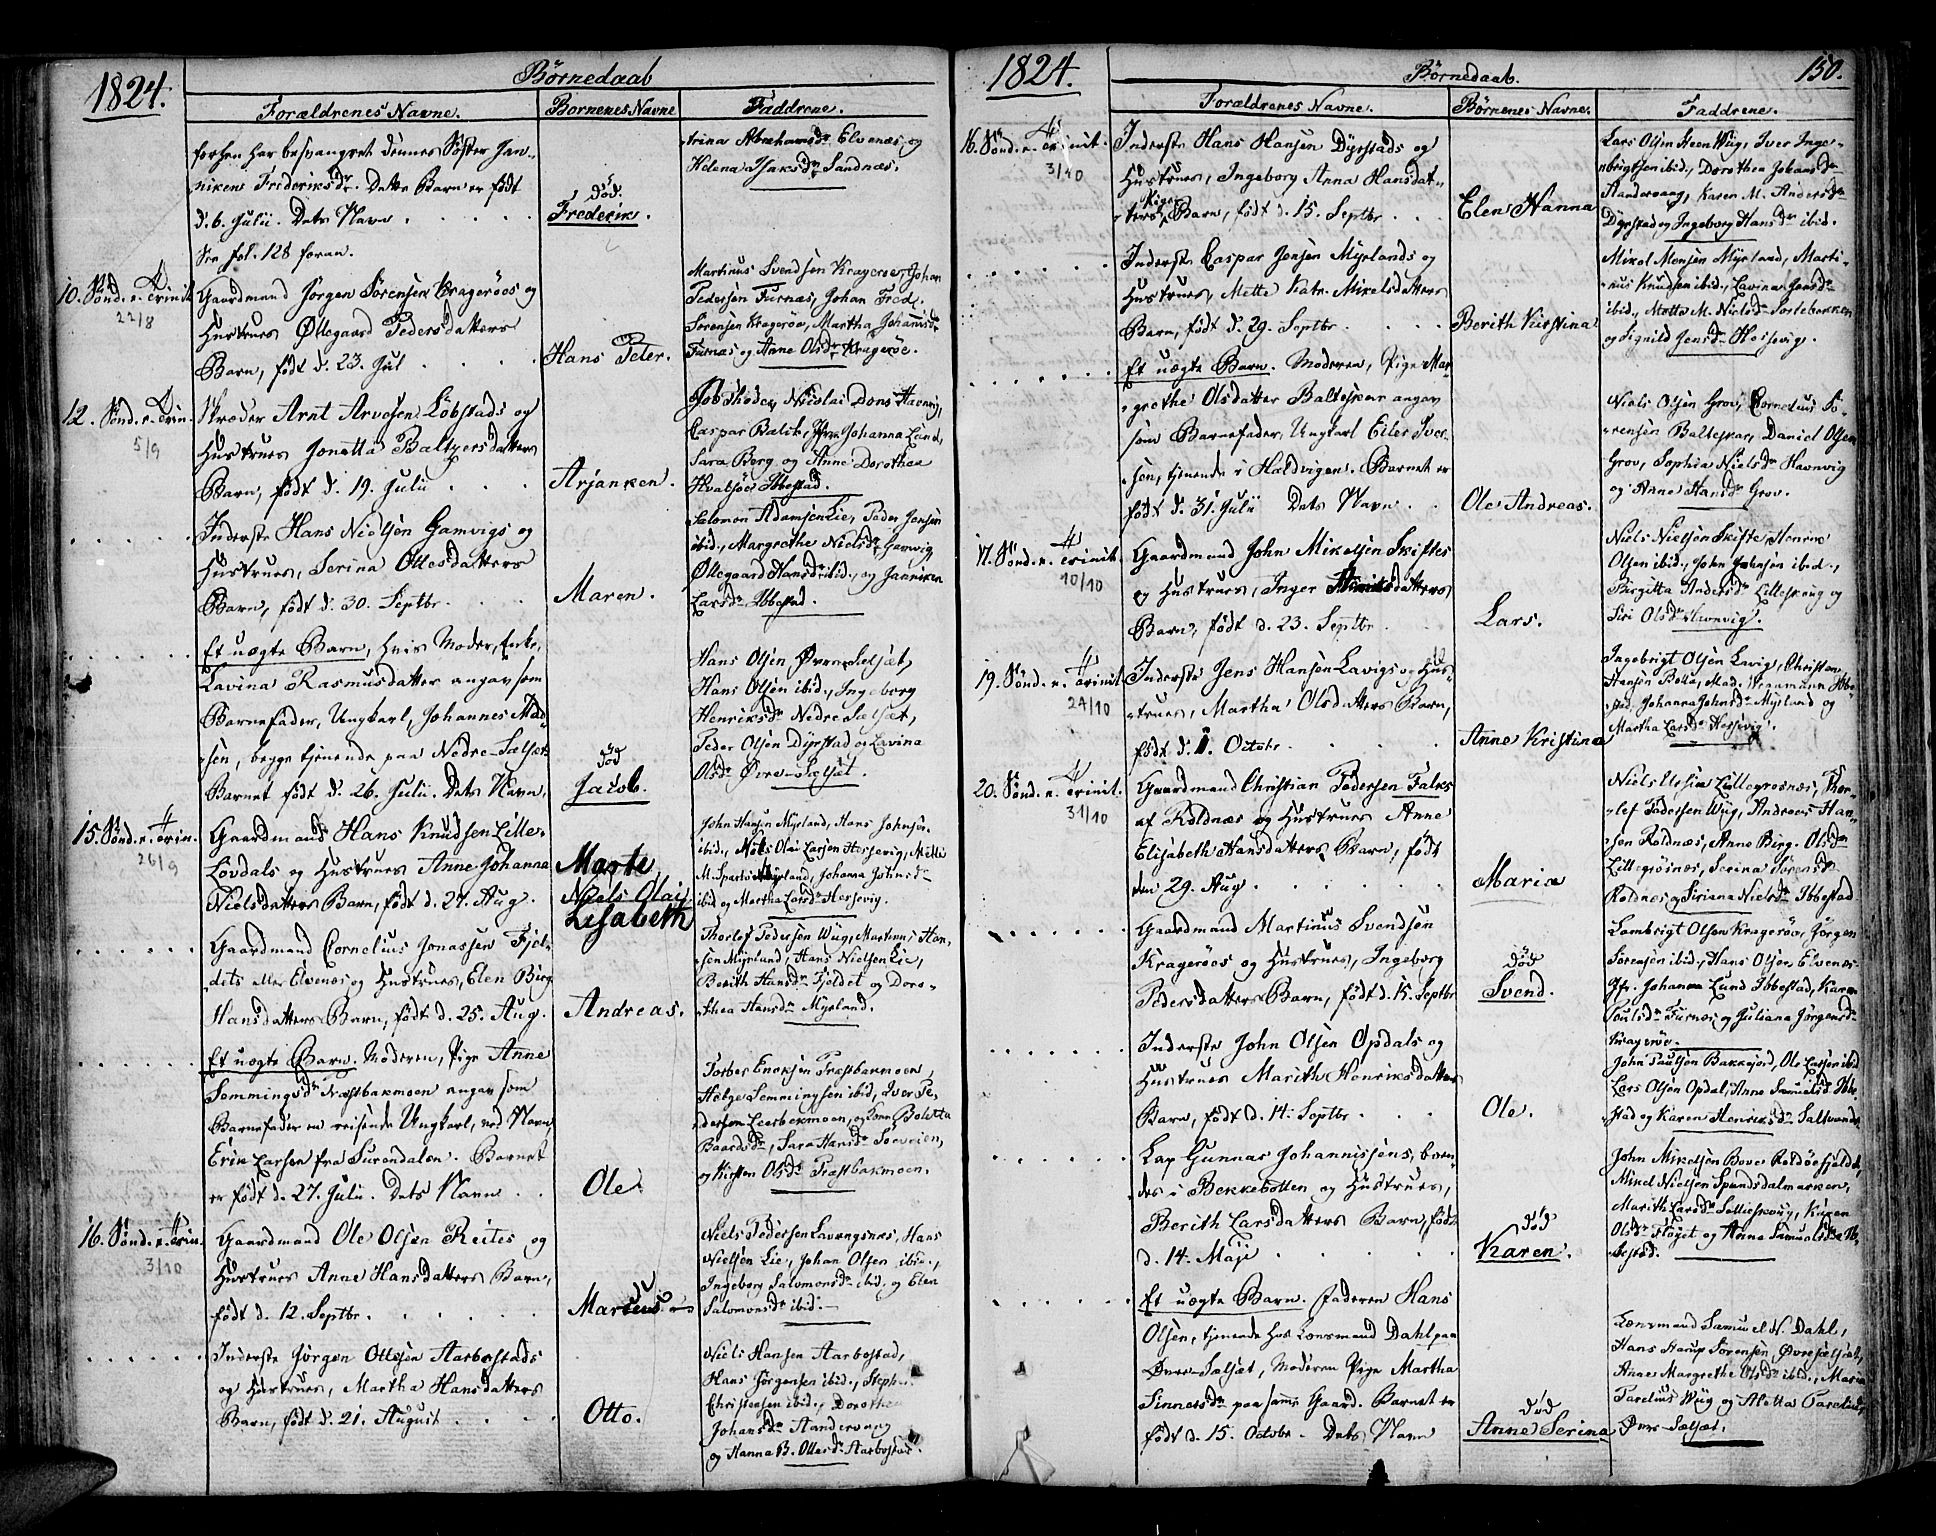 1824.
Børnedaab
Forældrenes Navne.
Børnenes Navne
Faddrene.
forhen har besvangret dennes Søster Jan-
niken Frederiksdr. Dette Barn er født
d. 6. Julii. Dets Navn
See fol. 128 foran.
død.
Frederik.
trina Abrahamsdr Elvenæs og
Helena Isaksdr Sandnæs.
10. Sønd. e. Trinit.
22/8
Gaardmand Jørgen Sørensen Kragerøes og
Hustrues Øllegaard Pedersdatters
Barn, født d. 23. Jul
Hans Peter.
Martinus Svendsen Kragerøe, Johan
Pedersen Furnæs, Johan Fred.
Sørensen Kragerøe, Martha Johannisdr
Furnæs og Anne Olsdr Kragerøe.
12. Sønd. e. Trin.
5/9
Skræder Arnt Arvesen Løbstads og
Hustrues Jonetta Baltzersdatters
Barn, født d. 19. Julii
Arjanken.
Nicolai Dons Havnvig,
Caspar Balik, Johanna Lund,
Sara Berg og Anne Dorothea
Hvalsøe Ibbestad.
Inderste Hans Nielsen Gamvigs og
Hustrues, Serina Ollesdatters
Barn, født d. 30. Septbr.
Maren.
Salomon Adamsen Lie, Peder Jensen
ibid., Margrethe Nielsdr Gamvig
Øllegaard Hansdr ibid., og Janniken
Larsdr Ibbestad.
Et uægte Barn, hvis Moder, Enke,
Lavina Rasmusdatter angav som
Barnefader, Ungkarl, Johannes Mad-
sen, begge tjenende paa Nedre-Sælset
Barnet født d. 26. Julii. Dets Navn,
død
Jacob.
Hans Olsen Øvre Sælset,
Hans Olsen ibid., Ingeborg
Henriksdr Nedre Sælset,
Peder Olsen Dyrstad og Lavina
Olsdr Øvre-Sælset.
15. Sønd. e. Trin.
26/9
Gaardmand Hans Knudsen Lille-
Løvdals og Hustrues Anne Johanna
Nielsdatters Barn, født d. 27. Aug.
Marte
Niels Olai
Lisabeth
John Hansen Myrland, Hans Johnsen
ibid., Niels Olai Larsen Hessevig, Mette
M. Myrland, Johanna Johnsdr
ibid og Martha Larsdr Hersevig.
Gaardmand Cornelius Jonassen Fjel-
dets eller Elvenæs og Hustrues, Elen Birg.
Hansdatters Barn, født d. 25. Aug.
Andreas.
Thorlef Pedersen Wüg, Martinus Han-
sen Myrland, Hans Nielsen Lie,
Berith Hansdr Fjeldet og Doro-
thea Hansdr Myrland.
Et uægte Barn. Moderen, Pige Anne
Semmingsdr Næstbakmoen angav som
Barnefader en reisende Ungkarl, ved Navn
Erik Larsen fra Surendalen. Barnet
er født d. 27. Julii. Dets Navn
Ole
Torber Enoksen Præstbakmoen,
Helge Semmingsen ibid, Iver Pe-
dersen Leerbekmoen, og Kone Boletta
Baardsdr, Sara Hansdr Soeveien,
og Kirsten Olsdr Præstbakmoen.
16. Sønd. e. Trin.
3/10
Gaardmand Ole Olsen Reites og
Hustrues Anne Hansdatters Barn,
født d. 12. Septbr.
Marius
Niels Pedersen Lavangsnæs, Hans
Nielsen Lie, Johan Olsen ibid.,
Ingeborg Salomonsdr ibid. og Elen
Salomonsdr ibid.
Inderste Jørgen Ottesen Aarbostads
og Hustrues, Martha Hansdatters
Barn, født d. 21. August
Otto.
Niels Hansen Aarbostad,
Hans Jørgensen ibid., Steph.
Christensen ibid., Dorothea
Johansdr Aandervaag
og Hanna B. Ottesdr Aarbostad.
1824.
Børnedaab.
150.
Forældrenes Navne.
Børnenes Navne.
Faddrene.
16. Sønd. e. Trinit.
3/10
Inderste Hans Hansen Dyrstads og
Hustrues, Ingeborg Anna Hansdat-
ters Pige Barn, født d. 15. Septbr.
Elen Hanna
Lars Olsen Steen Wüg, Iver Inge-
brigtsen ibid., Dorothea Johansdr
Aandervaag, Karen M. Andersdr
Dyrstad og Ingeborg Hansdr ibid.
Inderste Caspar Jensen Myrlands og
Hustrues, Mette Katr. Mikelsdatters
Barn, født d. 29. Septbr.
Berith Kirstina
Mikol Monsen Myrland, Marti-
nus Knudsen ibid., Lavina Jensdr
ibid., Mette M. Nielsdr Sortebakken
og Signild Jensdr Hersevig.
Et uægte Barn. Moderen, Pige Mar-
grethe Olsdatter Balteskar angav
som Barnefader, Ungkarl Eiler Iver-
sen, tjenende i Haldvigen. Barnet er
født d. 31. Julii Dets Navn
Ole Andreas.
Niels Olsen Grov, Cornelius Sø-
rensen Balteskar, Daniel Olsen
Grov, Sophia Nielsdr Havnvig
og Anne Hansdr Grov.
17. Sønd. e. Trinit.
10/10
Gaardmand John Mikelsen Skiftes
og Hustrues, Inger Henriksdatters
Barn, født d. 23. Septbr.
Lars.
Niels Nielsen Skifte, Henrik
Olsen ibid., John Johnsen ibid.,
Birgitta Andersdr Lilleskoug og
Siri Olsdr Havnvig.
19. Sønd. e. Trinit.
24/10
Inderste Jens Hansen Lavigs og Hus-
trues, Martha Olsdatters Barn,
født d. 1. Octobr.
Anne Kristina
Ingebrigt Olsen Lavig, Christen
Hansen Bolla, Mad. Wegemann Ibbe-
stad, Johanna Johnsdr Myrland og
Martha Larsdr Hersevig.
20. Sønd. e. Trinit.
31/10
Gaardmand Christian Pedersen Falks
af Roldnæs og Hustrues Anne
Elisabeth Hansdatters Barn, født
den 29. Aug
Maria
Niels Lillegrøsnæs, Thor-
lef Pedersen Wüg, Andreas Han-
sen Roldnæs, Anne Birg. Olsdr
Lillegrøsnæs, Serina Sørensdr
Roldnæs og Siriana Nielsdr Ibbestad
Gaardmand Martinus Svendsen
Kragerøes og Hustrues, Ingeborg
Pedersdatters Barn, født d. 15. Septbr
død
Svend.
Lambrigt Olsen Kragerøe, Jørgen
Sørensen ibid., Hans Olsen Elvenæs
Jfr. Johanna Lund Ibbestad, Karen
Poulsdr Furnæs og Juliana Jørgensdr
Kragerøe.
Inderste John Olsen Opdals og
Hustrues Marith Henriksdatters
Barn, født d. 14. Septbr
Ole.
John Paulsen Bakkejord, Ole Larsen ibid
Lars Olsen Opdal, Anne Samuelsd. Ibbe-
stad og Karen Henriksdr Saltvand.
Lap Gunnas Johannissens, boen-
des i Bekkebotten og Hustrues,
Berith Larsdatters Barn, født
d. 14. Maji
død
Karen.
John Mikelsen Bover Roldøefjeldet,
Mikel Nielsen Spandsdalmarken,
Marith Larsdr Lilleskoug, Karen
Olsdr Fløget og Anna Samuelsdr Ib-
bestad.
Et uægte Barn. Faderen Hans
Olsen, tjenende hos Lensmand Dahl paa
Øvre-Sælset, Moderen Pige Martha
Sinnersdr paa samme Gaard. Barnet er
født d. 15. Octobr. Dets Navn
død
Anne Serina
Lensmand Samuel N. Dahl,
Hans Aarup Sørensen, Øvresælset,
Anne Margrethe Olsdr ibid., Maria
Parelius Wüg og Aletta Parelius,
Øvre-Sælset.